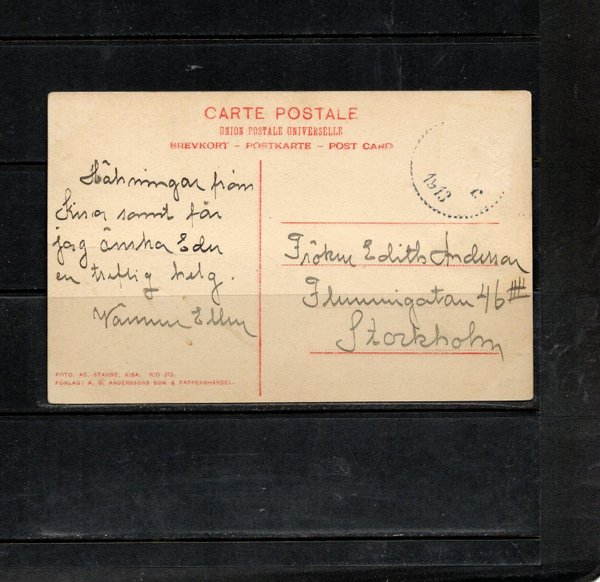 CARTE POSTALE
UNION POSTALE UNIVERSELLE
BREVKORT - POSTKARTE - POST CARD
1913 C.
Hälsningar från
Kisa samt får
jag önska Eder
en treflig helg.
Vännen Ellen
Fröken Edith Andersson
46 III
Stockholm
FOTO. AD. STAHRE, KISA. N:O 212.
FÖRLAG: A. G. ANDERSSONS BOK & PAPPERSHANDEL.